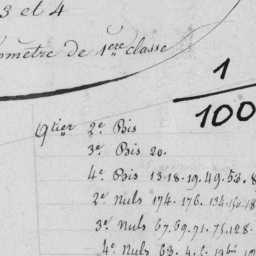 3 et 4
omètre de 1ère classe
1
100
Qtier 2e Bis
3e Bis 20.
4e Bis 13.18.19.49.53.8
2e Nuls 174. 176. 134.
3e Nuls 67.69.71.75.128.
4e Nuls 63.